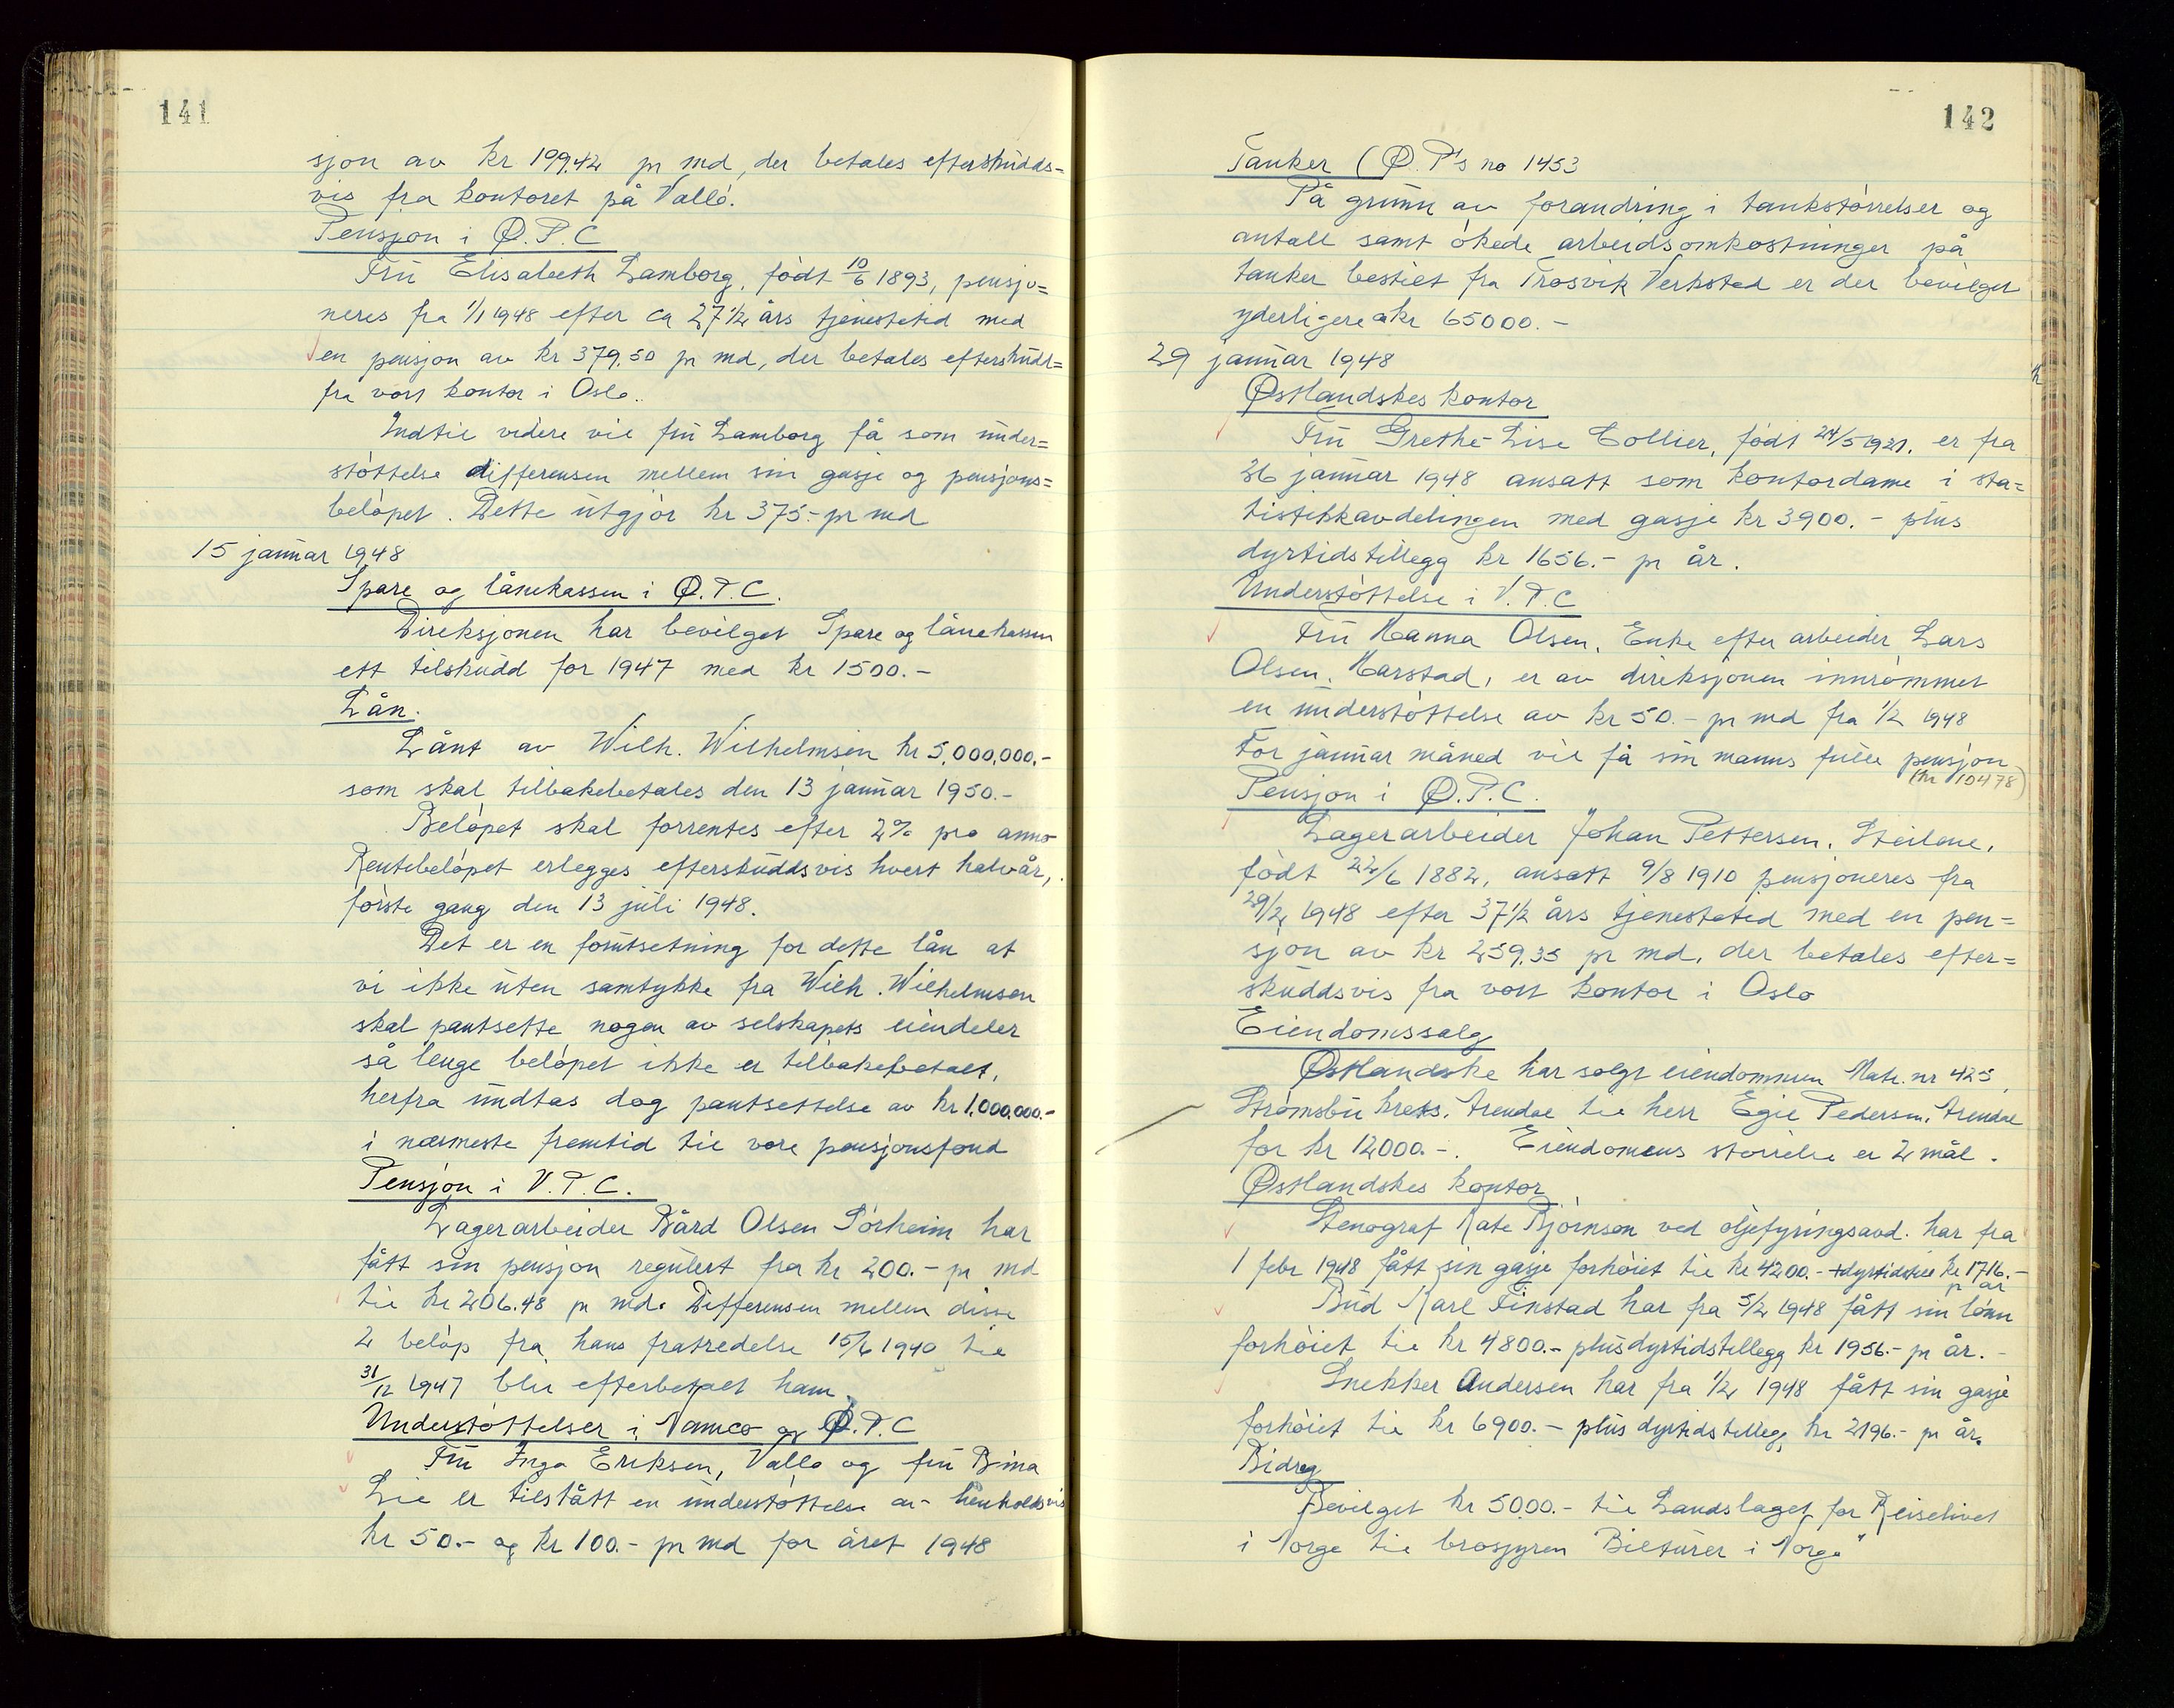 141
sjon av kr 199.42 pr md, der betales efterskudds=
vis fra kontoret på Vallö.
Pensjon i Ø.P.C
Fru Elisabeth Lamborg, födt 10/6 1893, pensjo=
neres fra 1/1 1948 efter ca 27 1/2 års tjenestetid med
en pensjon av kr 379.50 pr md, der betales efterskudd=
fra vort kontor i Oslo.
Indtil videre vil fru Lamborg få som under=
stöttelse differensen mellem sin gasje og pensjons=
belöpet. Dette utgjör kr 375.- pr md
15 januar 1948
Spare og lånekassen i Ø.P.C.
Direksjonen har bevilget Spare og lånekassen
ett tilskudd for 1947 med kr 1500.-
Lån.
Lånt av Wilh. Wilhelmsen kr 5,000,000.-
som skal tilbakebetales den 13 januar 1950.-
Belöpet skal forrentes efter 2% pro anno
Rentebelöpet erlegges efterskuddsvis hvert halvår,
förste gang den 13 juli 1948.
Det er en forutsetning for dette lån at
vi ikke uten samtykke fra Wilh. Wilhelmsen
skal pantsette nogen av selskapets eiendeler
så lenge belöpet ikke er tilbakebetalt,
herfra undtas dog pantsettelse av kr 1.000.000.-
i nærmeste fremtid til vore pensjonsfond
Pensjon i V.P.C.
Lagerarbeider Bård Olsen Sörheim har
fått sin pensjon regulert fra kr 200.- pr md
til kr 206.48 pr md. Differensen mellem disse
2 belöp fra hans fratredelse 15/6 1940 til
31/12 1947 blir efterbetalt ham.
Understöttelser i Namco og Ø.P.C
Fru Inga Eriksen, Vallö og fru Bina
Lie er tilstått en understöttelse av henholdsvis
kr 50.- og kr 100.- pr md for året 1948
142
Tanker (Ø.P's no 1453
På grunn av forandring i tankstörrelser og
antall samt ökede arbeidsomkostninger på
tanker bestilt fra Trosvik Verksted er der bevilget
yderligere kr 65000.-
29 januar 1948
Østlandskes kontor
Fru Grethe-Lise Collier, födt 24/5 1921, er fra
26 januar 1948 ansatt som kontordame i sta=
tistikkavdelingen med gasje kr 3900.- plus
dyrtidstillegg kr 1656.- pr år.
Understöttelse i V.P.C
Fru Hanna Olsen, Enke efter arbeider Lars
Olsen, Harstad, er av direksjonen innrömmet
en understöttelse av kr 50.- pr md fra 1/2 1948
For januar måned vil få sin manns fulle pensjon
(kr 104.78)
Pensjon i Ø.P.C.
Lagerarbeider Johan Pettersen, Steilene,
födt 22/6 1882, ansatt 9/8 1910 pensjoneres fra
29/2 1948 efter 37 1/2 års tjenestetid med en pen=
sjon av kr 259.35 pr md, der betales efter=
skuddsvis fra vort kontor i Oslo
Eiendomssalg
Østlandske har solgt eiendommen Matr. nr 425,
Strömsbu krets, Arendal til herr Egil Pedersen, Arendal
for kr 12000.-. Eiendomens störrelse er 2 mål.
Østlandskes kontor
Stenograf Kate Björnson ved oljefyringsavd. har fra
1 febr 1948 fått sin gasje forhöiet til kr 4200.- + dyrtidstill kr 1716.-
pr år
Bud Karl Finstad har fra 5/2 1948 fått sin lönn
forhöiet til kr 4800.- plus dyrtidstillegg kr 1956.- pr år.-
Snekker Andersen har fra 1/2 1948 fått sin gasje
forhöiet til kr 6900.- plus dyrtidstillegg kr 2196.- pr år.
Bidrag
Bevilget kr 5000.- til Landslaget for Reiselivet
i Norge til brosjyren Bilturer i Norge"